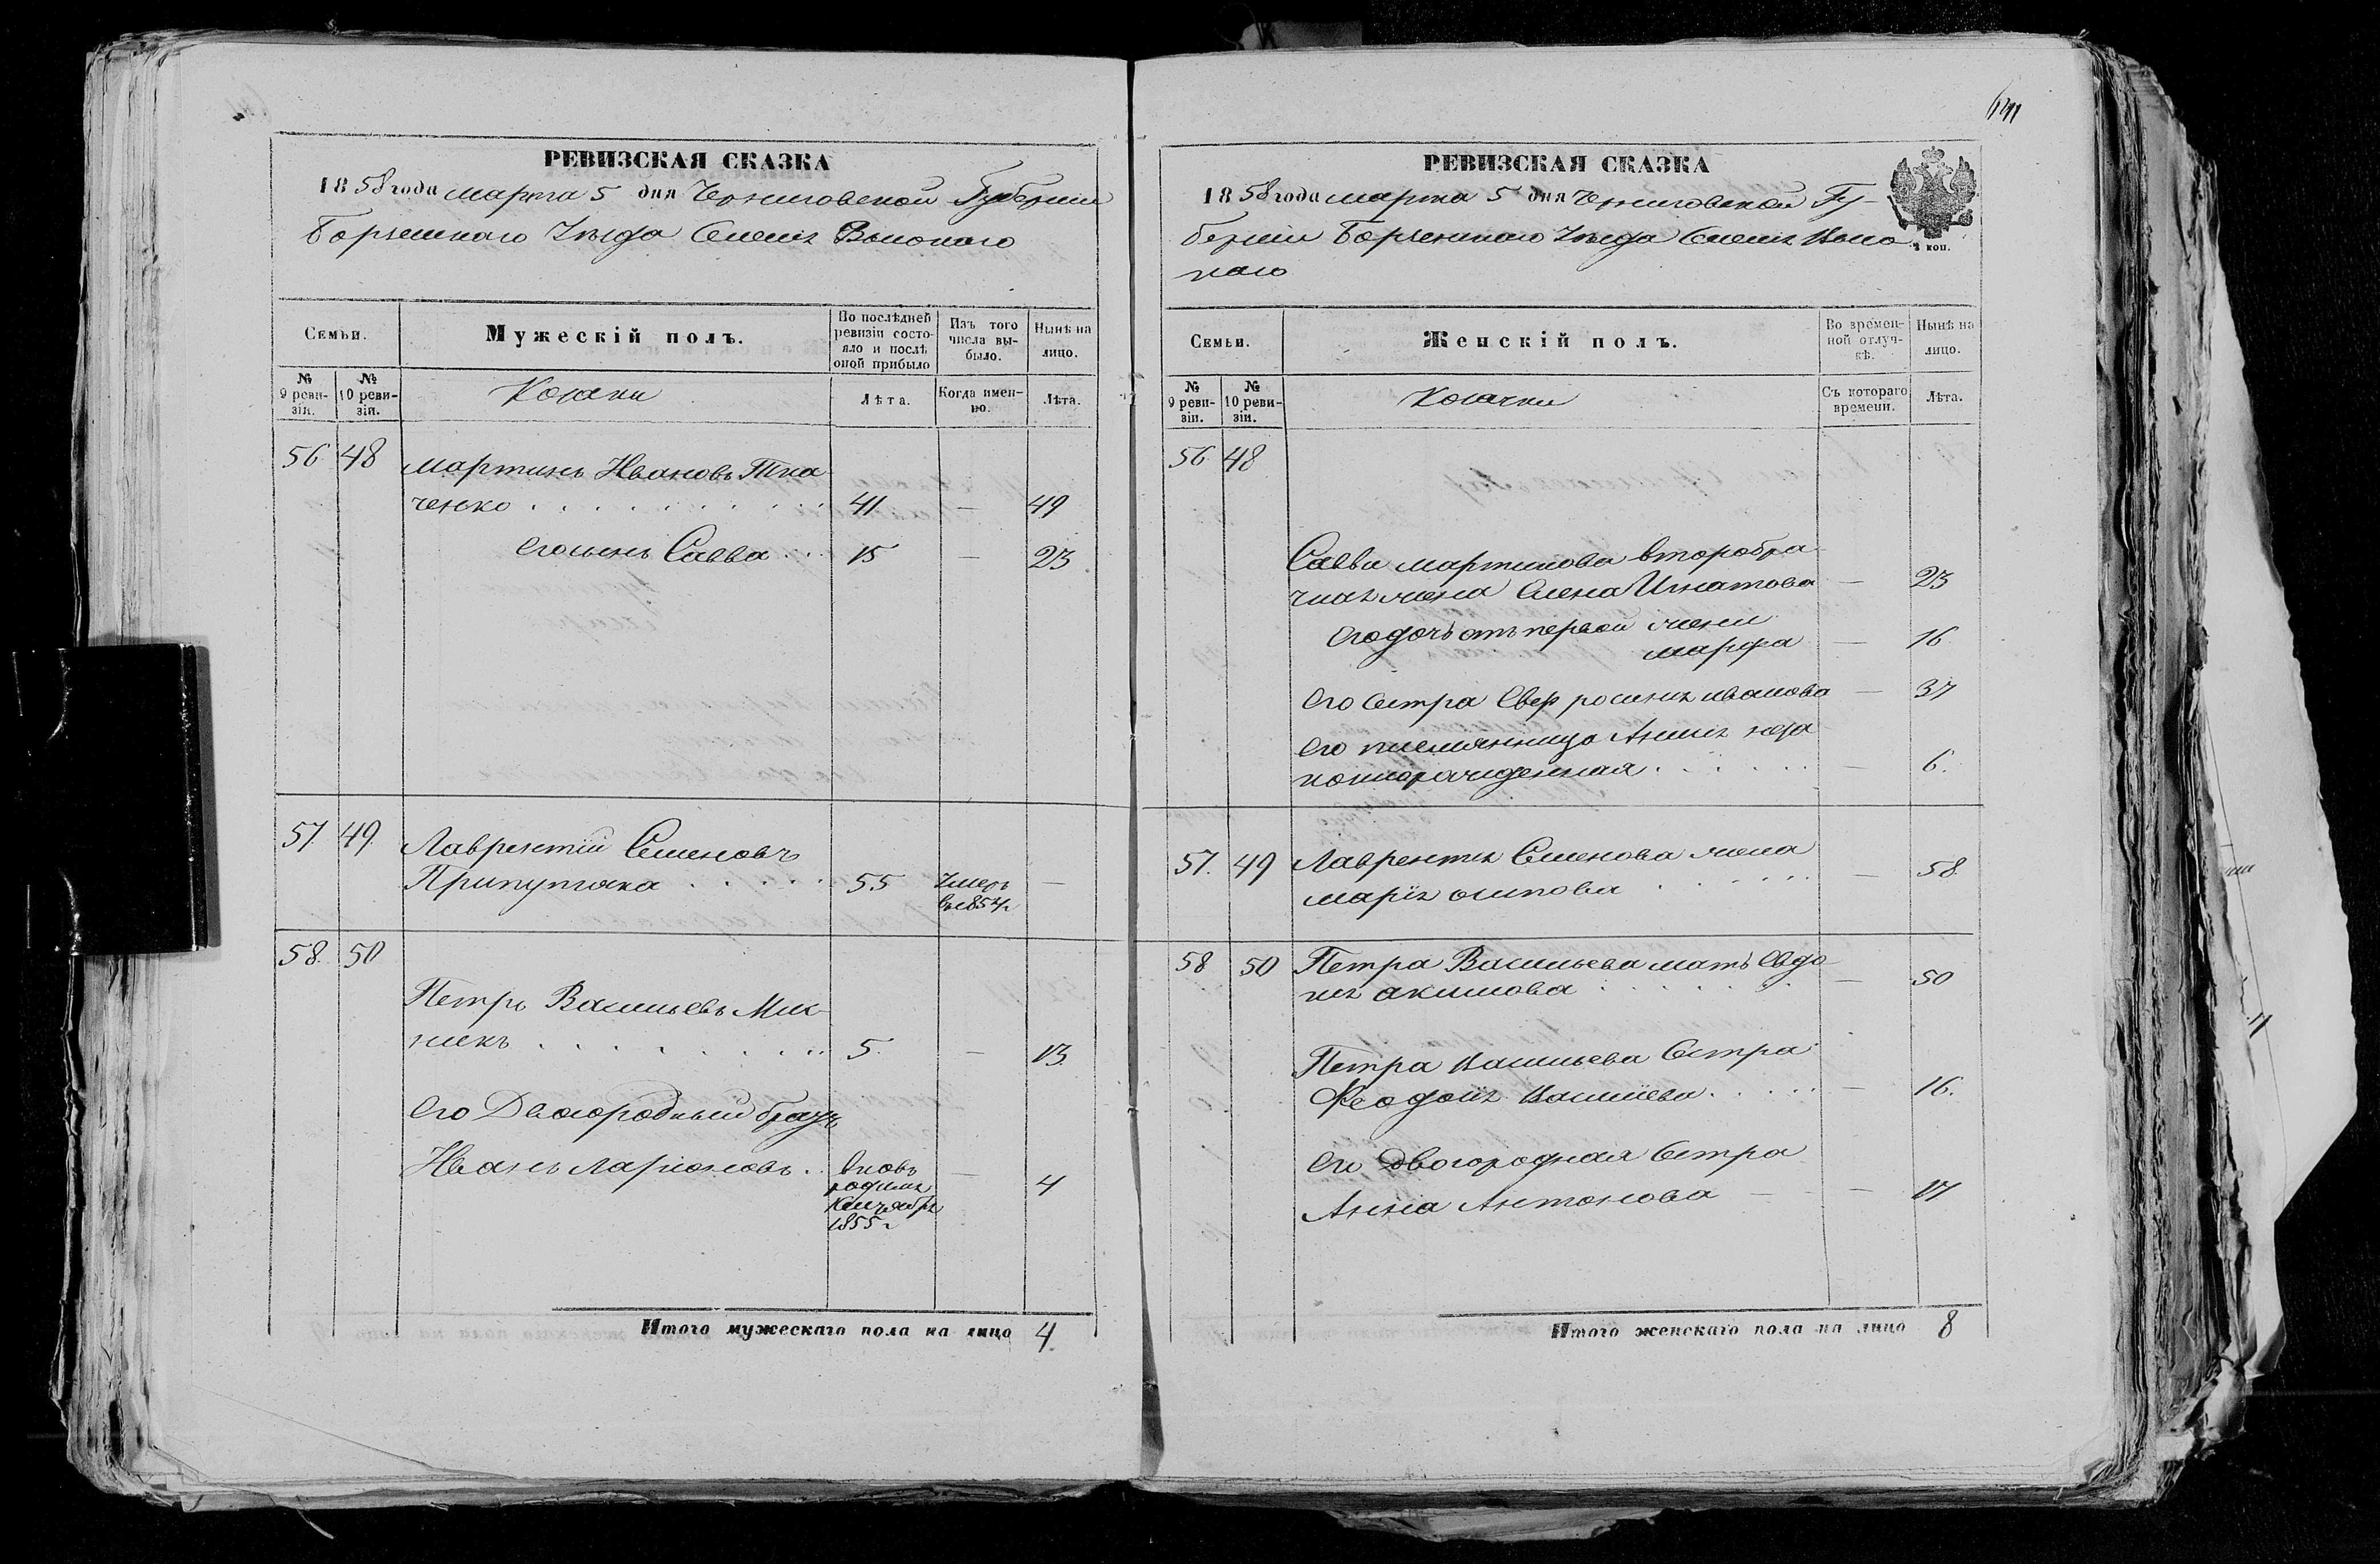 РЕВИЗСКАЯ СКАЗКА
1858 года марта 5 дня Черниговской Губерніи
Борзенскаго Уезда Селенія
Семьи.
Мужескій полъ.
По послѣдней ревизіи состояло и послѣ оной прибыло
Изъ того числа выбыло.
Нынѣ на лицо.
№ 9 ревизіи.
№ 10 ревизіи.
Козаки
Лѣта.
Когда именно.
Лѣта.
56 48 Мартинъ Ивановъ Тка
ченко 41 — 49
Его сынъ Савва 15 — 23
57. 49. Лаврентій Семеновъ
Припутняка 55 Умеръ —
в 185
58. 50
Петръ Васильевъ
никъ 5. — 13.
Его Двоюродный братъ
Иванъ Ларіоновъ вновь — 4
родился
1855 г
Итого мужескаго пола на лицо 4.
РЕВИЗСКАЯ СКАЗКА
1858 года марта 5 дня Черниговской Гу-
берніи Борзенскаго Уезда Селенія
каго
3 коп.
Семьи.
Женскій полъ.
Во временной отлучкѣ.
Нынѣ на лицо.
№ 9 ревизіи.
№ 10 ревизіи.
Козачки
Съ котораго времени.
Лѣта.
56 48
Савви Мартинова второбра
чная жена Елена Игнатова — 23
Его дочь отъ первой жени
Марфа — 16
Его Сестра Иванова — 37
Его племянница Анна неза
коннорожденная — 6.
57. 49 Лаврентія Семенова жена
Марія Осипова — 58
58 50 Петра Васильева мать Евдо
кія Акимова — 50
Петра Васильева Сестра
Феодосія Васильева — 16.
Его Двоюродная Сестра
Анна Антонова — 17
Итого женскаго пола на лицо 8